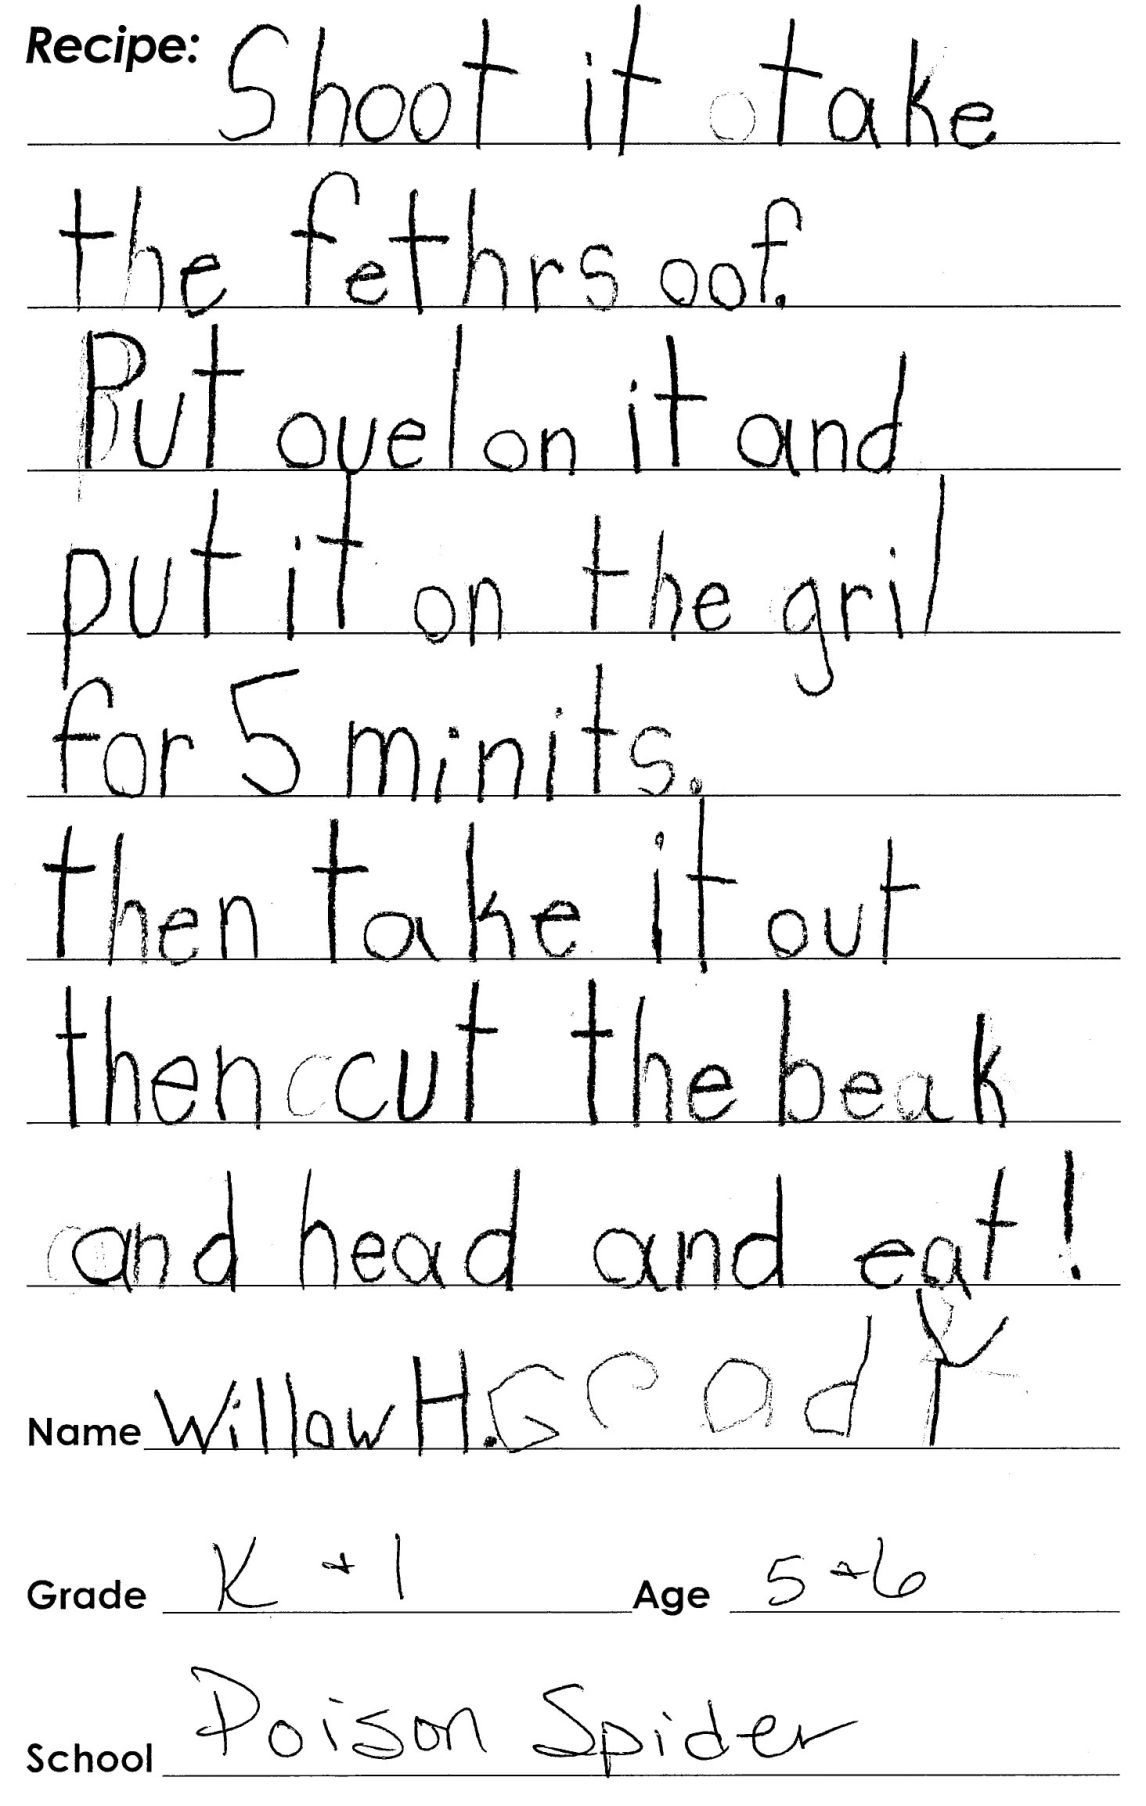 Recipe: Shoot it take
the fethrs oof.
Put ouel on it and
put it on the gril
for 5 minits.
then take it out
then cut the beak
and head and eat!
Name Willow H. Grady
Grade K + 1 Age 5 + 6
School Poison Spider